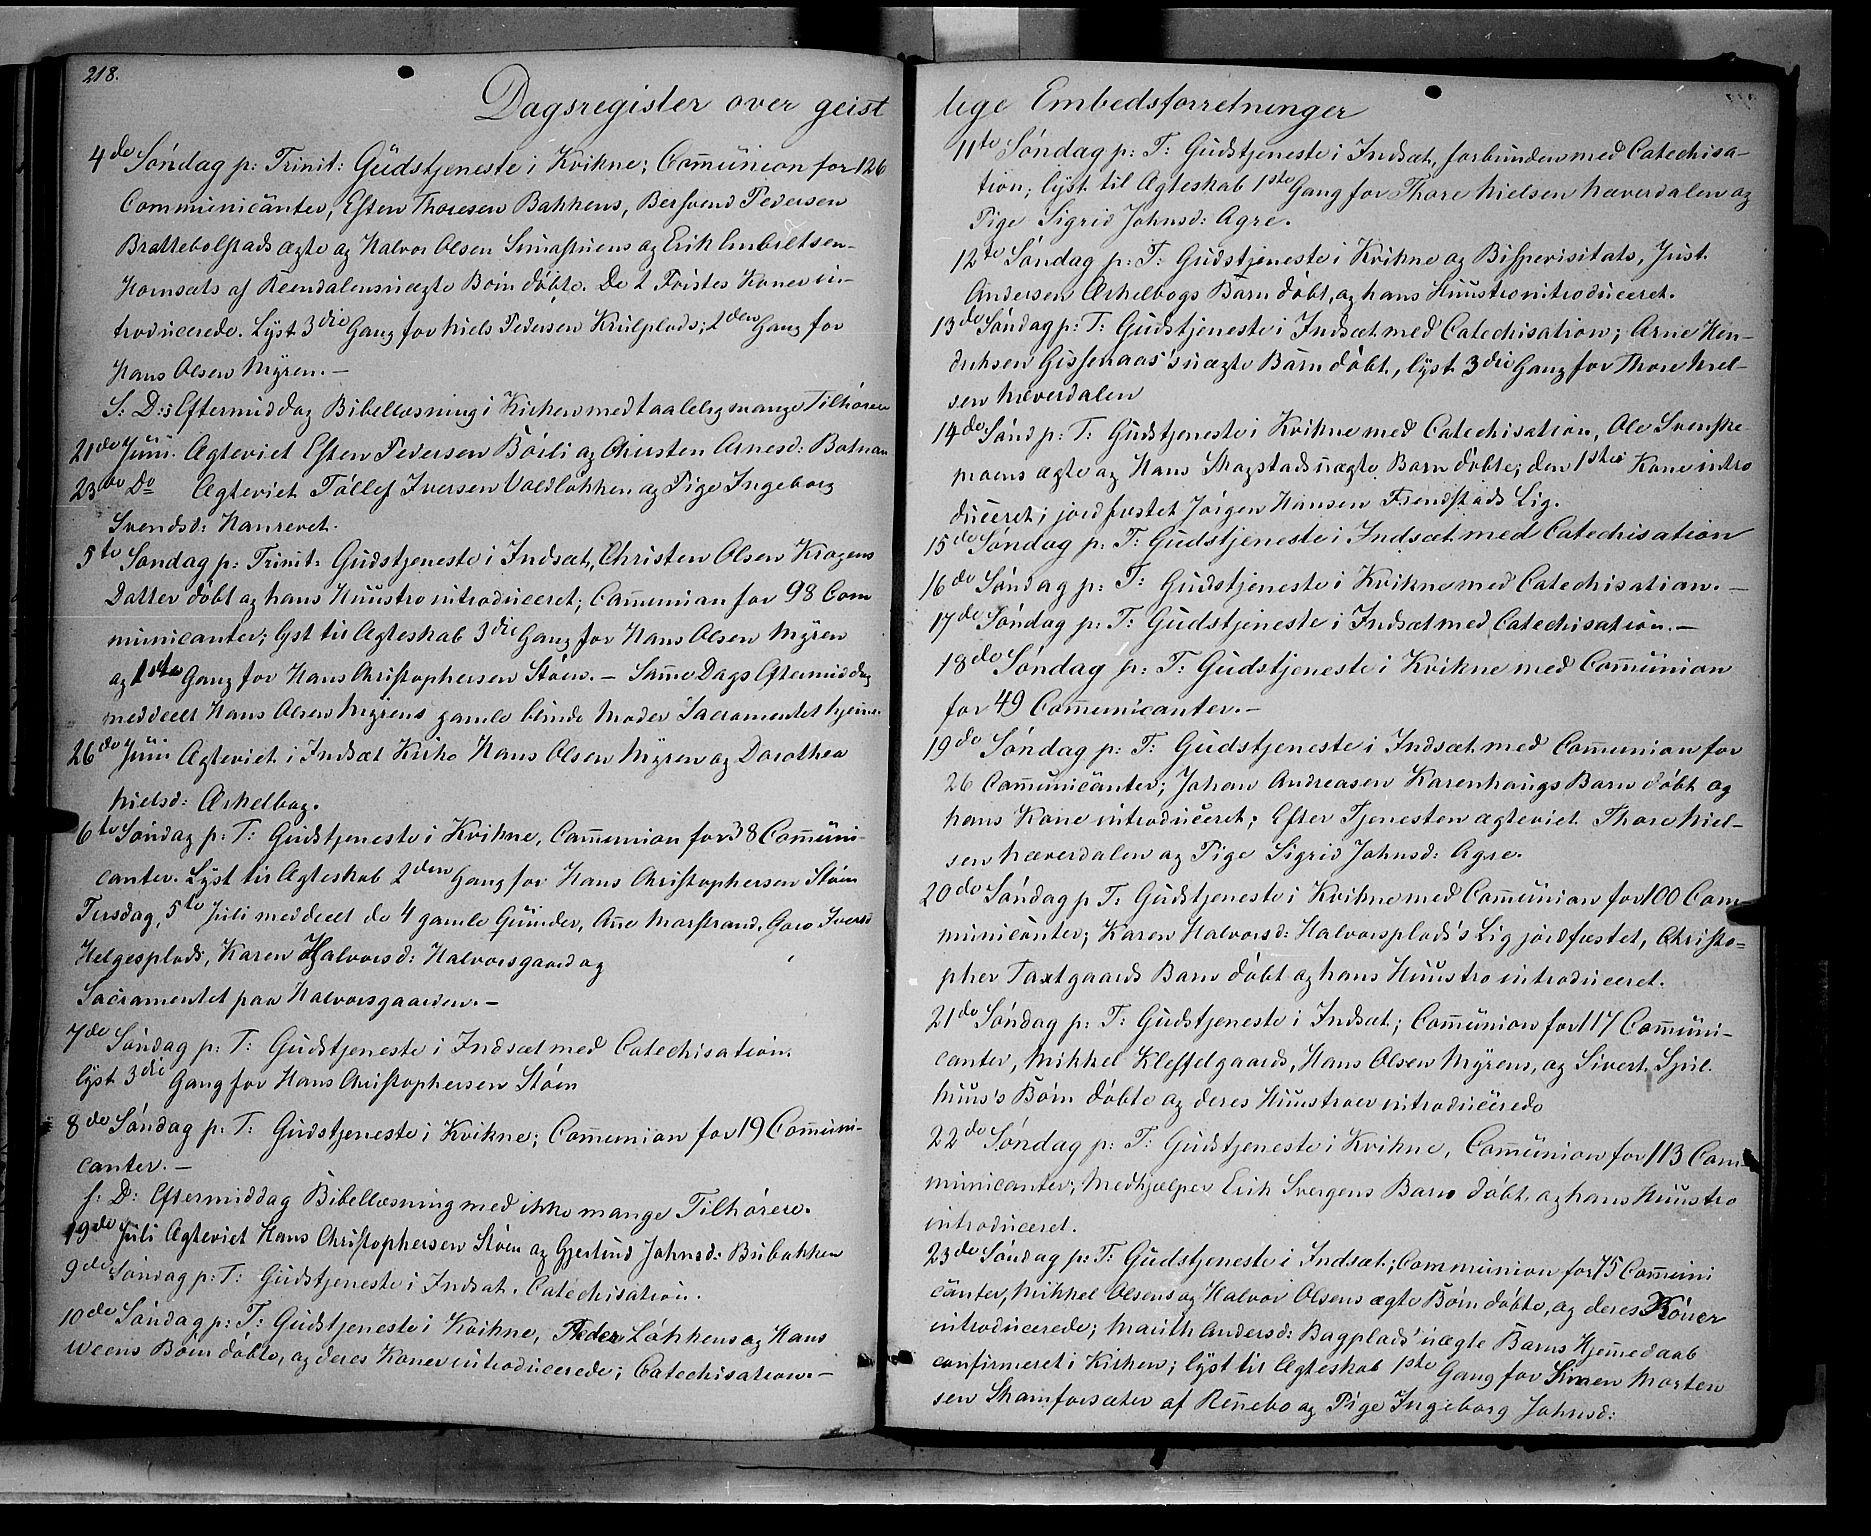 218.
Dagsregister over geist
4de Søndag p: Trinit: Gudstjeneste i Kvikne; Com̄union for 126
Communicanter, Esten Thoresen Bakkens, Bersvend Pedersen
Brattebolstads ægte og Halvor Olsen og Erik Embretsen
Hornsæts af Reendalen uægte Børn døbte. De 2 Førstes Koner in-
troducerede. Lyst 3die Gang for Niels Pedersen Krulplads; 2den Gang for
Hans Olsen Myren. —
S: D: Eftermiddag Bibellæsning i Kirken med taalelig mange Tilhørere
21de Juni. Ægteviet Esten Pedersen Böili og Chirsten Arnesd: Botnan
23de Do Ægteviet Tøllef Iversen Voldløkken og Pige Ingeborg
Svendsd: Hanrevet.
5te Søndag p: Trinit: Gudstjeneste i Indsæt, Christen Olsen Kragens
Datter døbt og hans Huustro introduceret; Com̄union for 98 Com
municanter; lyst til Ægteskab 3die Gang for Hans Olsen Myren
og 1ste Gang for Hans Christophersen Støen. — Sam̄e Dags Eftermiddag
meddeelt Hans Olsen Myrens gamle blinde Moder Sacramentet hjem̄e.
26de Juni Ægteviet i Indsæt Kirke Hans Olsen Myren og Dorothea
Nielsd: Orkelbog.
6te Søndag p: T: Gudstjeneste i Kvikne, Com̄union for 38 Com̄uni-
canter. Lyst til Ægteskab 2den Gang for Hans Christophersen Støen
Tirsdag, 5te Juli meddeelt de 4 gamle Qvinder, Ane Marstrand, Goro Iversd
Helgesplads, Karen Halvorsd: Halvorsgaard og
Sacramentet paa Halvorsgaarden. —
7de Søndag p: T: Gudstjeneste i Indsæt med Catechisation.
lyst 3die Gang for Hans Christophersen Støen
8de Søndag p: T: Gudstjeneste i Kvikne; Com̄union for 19 Com̄uni-
canter. —
S: D: Eftermiddag Bibellæsning med ikke mange Tilhørere.
19de Juli Ægteviet Hans Christophersen Støen og Gjertrud Johnsd: Bubakken
9de Søndag p: T: Gudstjeneste i Indsæt. Catechisation.
10de Søndag p: T: Gudstjeneste i Kvikne, Peder Løkkens og Hans
Weens Børn døbte, og deres Koner introducerede; Catechisation. —
lige Embedsforretninger
11te Søndag p: T: Gudstjeneste i Indsæt, forbunden med Catechisa-
tion; lyst til Ægteskab 1ste Gang for Thore Nielsen Næverdalen og
Pige Sigrid Johnsd: Agre.
12te Søndag p: T: Gudstjeneste i Kvikne og Bispevisitats, Just
Andersen Orkelbogs Barn døbt, og hans Huustro introduceret.
13de Søndag p: T: Gudstjeneste i Indsæt med Catechisation; Arne Hen-
driksen Gissenaas's uægte Barn døbt, lyst 3die Gang for Thore Niel-
sen Næverdalen
14de Sønd p: T: Gudstjeneste i Kvikne med Catechisation, Ole Svenske
moens ægte og Hans Skogstads uægte Barn døbte; den 1stes Kone intro
duceret; jordfæstet Jørgen Hansen Frendstads Lig.
15de Søndag p: T: Gudstjeneste i Indsæt med Catechisation
16de Søndag p: T: Gudstjeneste i Kvikne med Catechisation. —
17de Søndag p: T: Gudstjeneste i Indsæt med Catechisation. —
18de Søndag p: T: Gudstjeneste i Kvikne med Com̄union
for 49 Com̄unicanter. —
19de Søndag p: T: Gudstjeneste i Indsæt med Com̄union for
26 Com̄unicanter; Johan Andreasen Karenhaugs Barn døbt og
hans Kone introduceret; Efter Tjenesten ægteviet Thore Niel-
sen Næverdalen og Pige Sigrid Johnsd: Agre.
20de Søndag p T: Gudstjeneste i Kvikne med Com̄union for 100 Com-
municanter; Karen Halvorsd: Halvorsplads's Lig jordfæstet, Christo-
pher Taxtgaards Barn døbt og hans Huustro introduceret.
21de Søndag p: T: Gudstjeneste i Indsæt; Com̄union for 117 Com̄uni-
canter, Mikkel Kleffelgaards, Hans Olsen Myrens, og Sivert Spil
huus's Børn døbte og deres Huustroer introducerede
22de Søndag p: T: Gudstjeneste i Kvikne, Com̄union for 113 Com-
municanter; Medhjælper Erik Svergens Barn døbt, og hans Huustro
introduceret.
23de Søndag p: T: Gudstjeneste i Indsæt; Communion for 75 Com̄uni
canter, Mikkel Olsens og Halvor Olsens ægte Børn døbte, og deres Koner
introducerede; Marith Andersd: Bagplads' uægte Barns Hjem̄edaab
confirmeret i Kirken; lyst til Ægteskab 1ste Gang for Simen Morten
sen Skamforsæter af Ren̄ebo og Pige Ingeborg Johnsd: